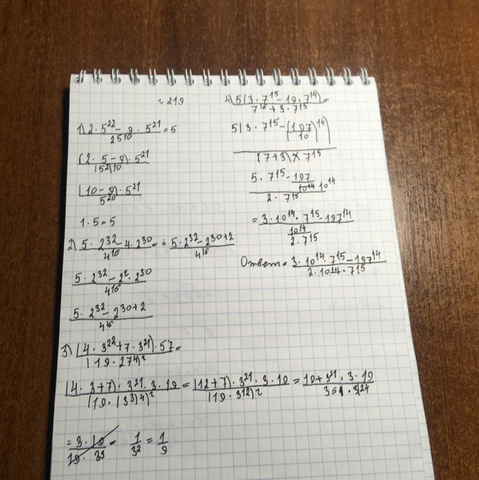 № 219
1) (2 · 5^22 - 9 · 5^21 / 25^10 = 5
(2 · 5 - 9) · 5^21 / (5^2)^10
(10 - 9) · 5^21 / 5^20
1 · 5 = 5
2) 5 · 2^32 - 4 · 2^30 / 4^16 = 5 · 2^32 - 2^30+2 / 4^16
5 · 2^32 - 2^2 · 2^30 / 4^16
5 · 2^32 - 2^30+2 / 4^16
3) (4 · 3^22 + 7 · 3^21) · 57 / (19 · 27^4)^2 =
(4 · 3 + 7) · 3^21 · 3 · 19 / (19 · (3^3)^4)^2 = (12 + 7) · 3^21 · 3 · 19 / (19 · 3^12)^2 =
= 3 · 19 / 19 · 3^3 = 1 / 3^2 = 1 / 9
4) 5(3 · 7^15 - 19 · 7^14) / 7^16 + 3 · 7^15 =
5(3 · 7^15 - (197 / 10)^14) / (7 + 3) × 7^15
= 3 · 10^14 · 7^15 - 197^14 / 10^14 / 2 · 7^15
Ответ = 3 · 10^14 · 7^15 - 197^14 / 2 · 10^14 · 7^15